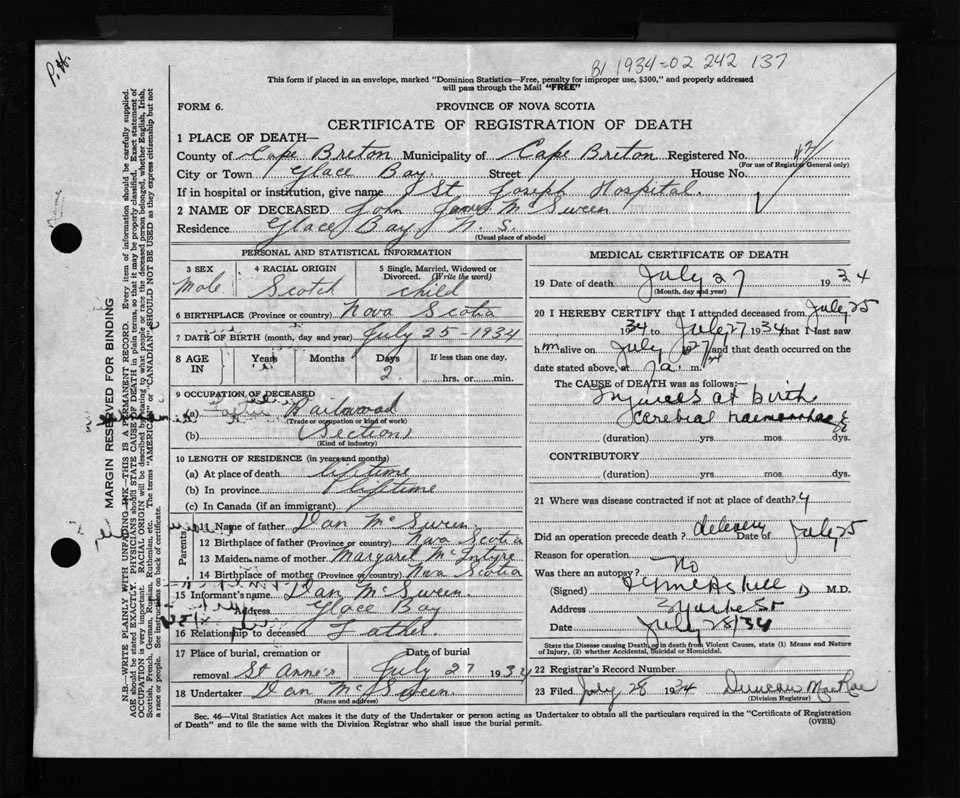 P.H.
B1 1934-02 242 137
This form if placed in an envelope, marked "Dominion Statistics—Free, penalty for improper use, $300," and properly addressed
will pass through the Mail "FREE"
FORM 6.
PROVINCE OF NOVA SCOTIA
CERTIFICATE OF REGISTRATION OF DEATH
1 PLACE OF DEATH—
County of Cape Breton Municipality of Cape Breton Registered No.
(For use of Registrar General only)
City or Town Glace Bay. Street House No.
If in hospital or institution, give name St Joseph Hospital.
2 NAME OF DECEASED John James McSween
Residence Glace Bay N.S.
(Usual place of abode)
PERSONAL AND STATISTICAL INFORMATION
3 SEX Male
4 RACIAL ORIGIN Scotch
5 Single, Married, Widowed or Divorced. (Write the word) child
6 BIRTHPLACE (Province or country) Nova Scotia
7 DATE OF BIRTH (month, day and year) July 25-1934
8 AGE IN Years Months Days 2. If less than one day, ....hrs. or ....min.
9 OCCUPATION OF DECEASED
(a)
(Trade or occupation or kind of work)
(b) (Section)
(Kind of industry)
10 LENGTH OF RESIDENCE (in years and months)
(a) At place of death lifetime
(b) In province lifetime
(c) In Canada (if an immigrant)
Parents
11 Name of father Dan McSween
12 Birthplace of father (Province or country) Nova Scotia
13 Maiden name of mother Margaret McIntyre
14 Birthplace of mother (Province or country) Nova Scotia
15 Informant's name Dan McSween.
Address Glace Bay
16 Relationship to deceased Father.
17 Place of burial, cremation or removal St Anne's Date of burial July 27 1934
18 Undertaker Dan McSween
(Name and address)
MEDICAL CERTIFICATE OF DEATH
19 Date of death July 27 1934
(Month, day and year)
20 I HEREBY CERTIFY that I attended deceased from July 25
1934 to July 27 1934 that I last saw
h m alive on July 27/34 and that death occurred on
date stated above, at 7 a. m.
The CAUSE OF DEATH was as follows:
Injuries at birth
Cerebral Haemorrhage
(duration) yrs mos dys.
CONTRIBUTORY
(duration) yrs. mos. dys.
21 Where was disease contracted if not at place of death?
Did an operation precede death? delivery Date of July 25
Reason for operation
Was there an autopsy? No
(Signed) M.D.
Address
Date July 28/34
State the Disease causing Death, or in death from Violent Causes, state (1) Means and Nature
of Injury, (2) whether Accidental, Suicidal or Homicidal.
22 Registrar's Record Number
23 Filed July 28 1934 Duncan MacRae
(Division Registrar)
Sec. 46—Vital Statistics Act makes it the duty of the Undertaker or person acting as Undertaker to obtain all the particulars required in the "Certificate of Registration
of Death" and to file the same with the Division Registrar who shall issue the burial permit. (OVER)
MARGIN RESERVED FOR BINDING
N.B.—WRITE PLAINLY WITH UNFADING INK—THIS IS A PERMANENT RECORD. Every item of information should be carefully supplied.
AGE should be stated EXACTLY. PHYSICIANS should STATE CAUSE OF DEATH in plain terms, so that it may be properly classified. Exact statement of
OCCUPATION is very important. RACIAL ORIGIN will be described by stating to what people or race the deceased person belonged, whether English, Irish,
Scottish, French, German, Russian, Ruthenian, etc. The terms "AMERICAN" or "CANADIAN" SHOULD NOT BE USED as they express citizenship but not
a race or people. See instructions on back of certificate.